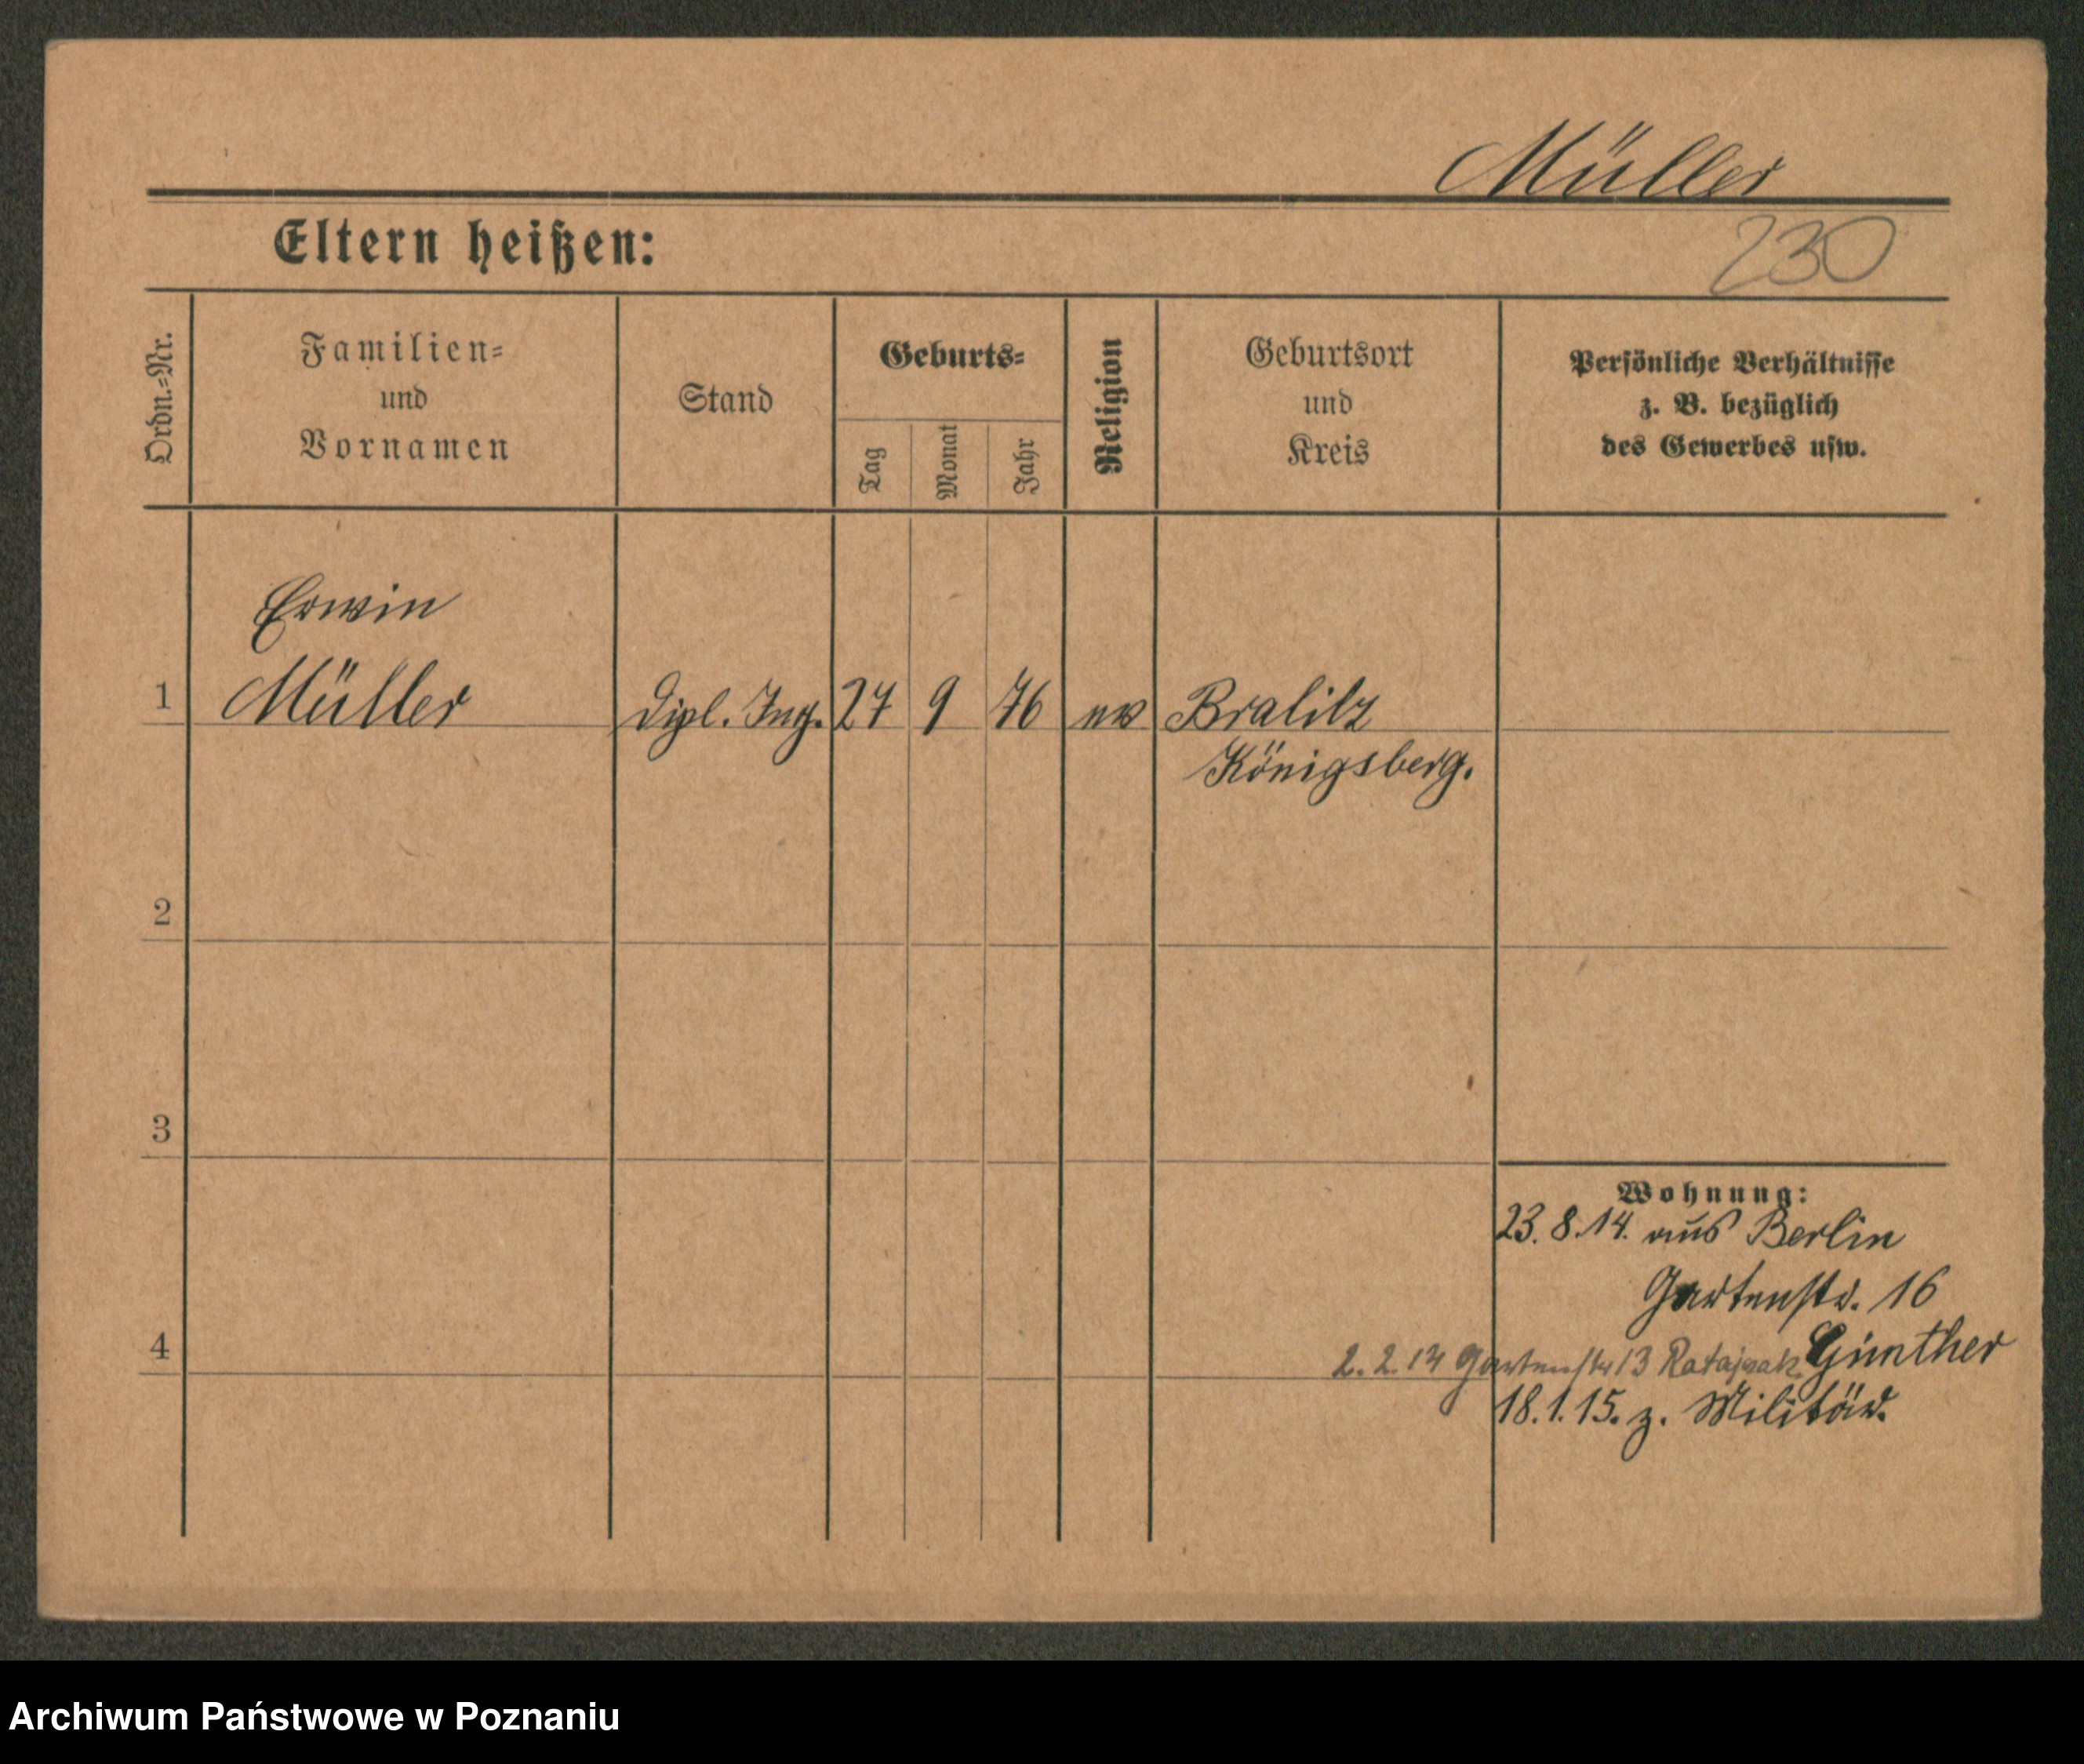 Müller
Eltern heißen:
230
Ordn.-Nr.
Familien-
und
Vornamen
Stand
Geburts-
Tag
Monat
Jahr
Religion
Geburtsort
und
Kreis
Persönliche Verhältnisse
z. B. bezüglich
des Gewerbes usw.
Erwin
1 Müller Dipl. Ing. 27 9 76 ev Bralitz
Königsberg.
2
3
Wohnung:
23. 8. 14. aus Berlin
Gartenstr. 16
Günther
4
2. 2. 14 Gartenstr 13 Ratajczak
18. 1. 15. z. Militär.
Archiwum Państwowe w Poznaniu